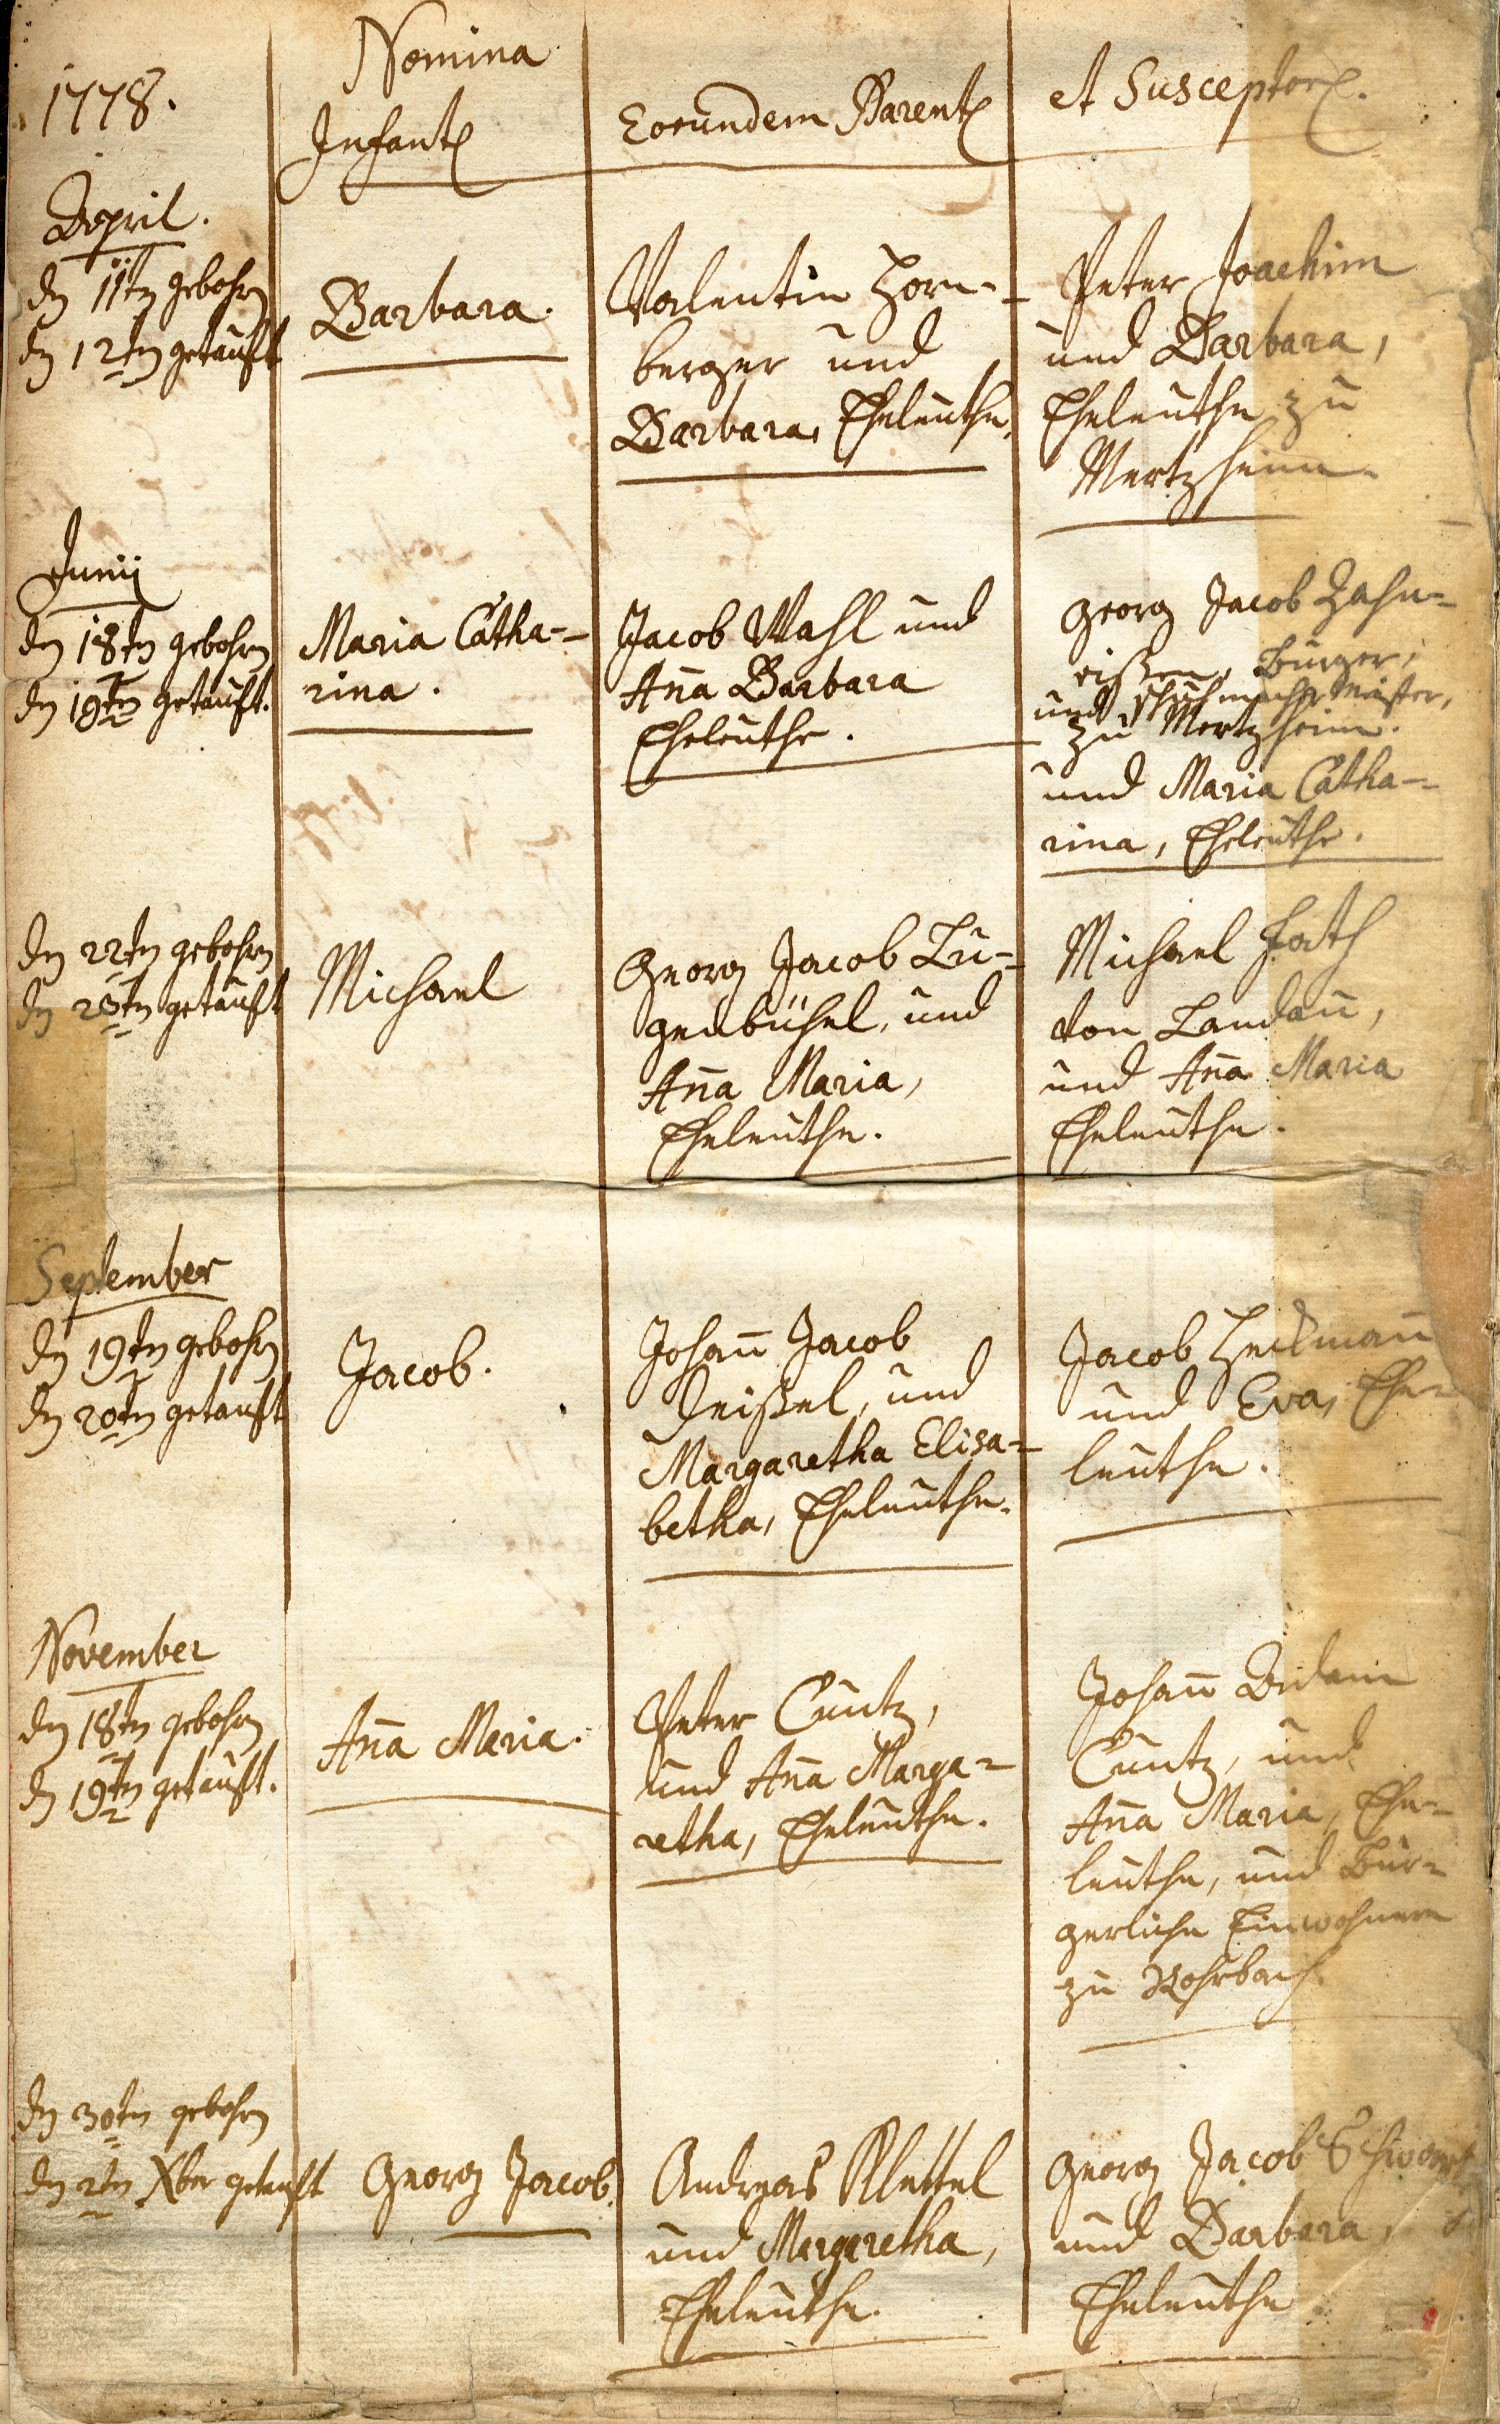 1778.
Nomina
Infant
Eorundem Parent
et Susceptor.
April.
dn 11tn gebohrn
dn 12tn getauft
Barbara.
Valentin Horn-
berger und
Barbara, Eheleuthe.
Peter Joachim
und Barbara,
Eheleuthe zu
Mertzheim.
Junii
dn 18tn gebohrn
dn 19tn getauft.
Maria Catha-
rina.
Jacob Wahl und
Aña Barbara
Eheleuthe.
Georg Jacob Zahn-
eißen, Burger,
und Schuhmacher Meister,
zu Mertzheim.
und Maria Catha-
rina, Eheleuthe.
dn 22tn gebohrn
dn 23tn getauft
Michael
Georg Jacob Lu-
genbühel, und
Aña Maria,
Eheleuthe.
Michael Fath
von Landau,
und Aña Maria
Eheleuthe.
September
dn 19tn gebohrn
dn 20tn getauft
Jacob.
Johañ Jacob
und
Margaretha Elisa-
betha, Eheleuthe.
Jacob Heckmañ
und Eva, Ehe-
leuthe.
November
dn 18tn gebohrn
dn 19tn getauft.
Aña Maria.
Peter Cuntz,
und Aña Marga-
retha, Eheleuthe.
Johañ
Cuntz, und
Aña Maria, Ehe-
leuthe, und Bur-
gerliche Einwohnere
zu Rohrbach.
dn 30tn gebohrn
dn 2tn Xber getauft
Georg Jacob.
Andreas Klettel
und Margaretha,
Eheleuthe.
Georg Jacob
und Barbara,
Eheleuthe